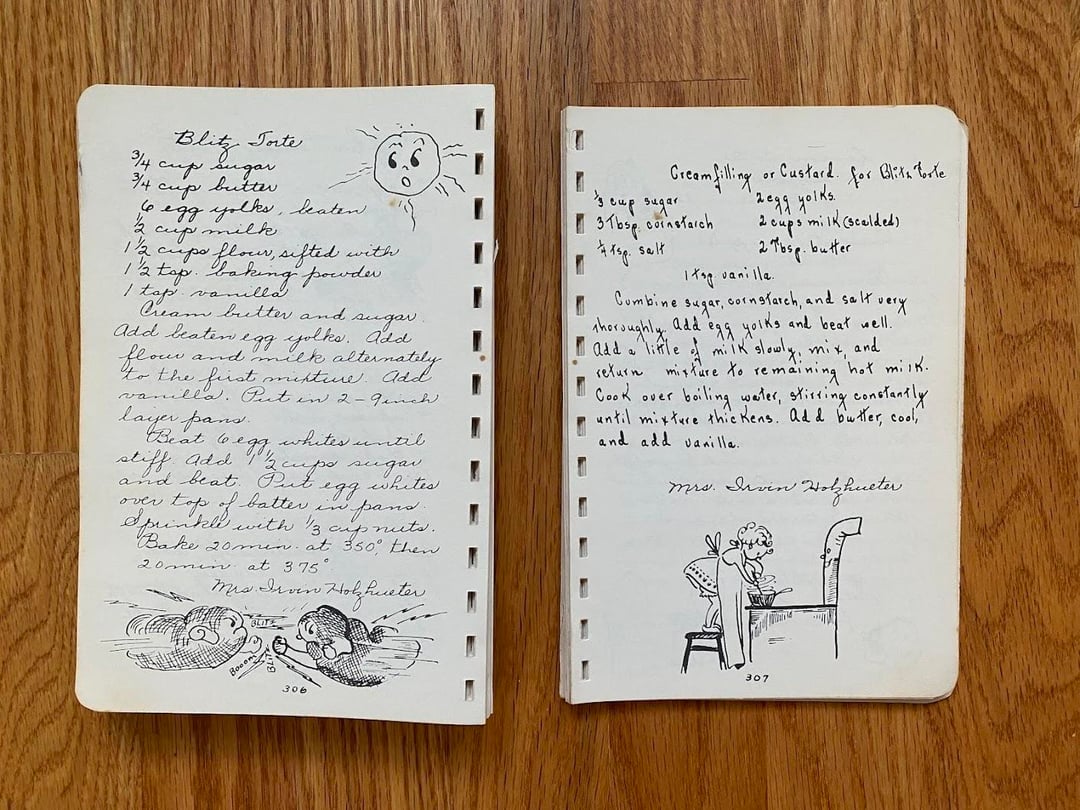 Blitz Torte
3/4 cup sugar
3/4 cup butter
6 egg yolks, beaten
1/2 cup milk
1 1/2 cups flour, sifted with
1 1/2 tsp. baking powder
1 tsp. vanilla
Cream butter and sugar.
Add beaten egg yolks. Add
flour and milk alternately
to the first mixture. Add
vanilla. Put in 2-9inch
layer pans.
Beat 6 egg whites until
stiff. Add 1 1/2 cups sugar
and beat. Put egg whites
over top of batter in pans.
Sprinkle with 1/3 cup nuts.
Bake 20 min. at 350° then
20 min. at 375°
Mrs. Irvin Holzhueter
BLITZ
Booom
BLITZ
306
Creamfilling or Custard. for Blitz Torte
1/3 cup sugar 2 egg yolks.
3 Tbsp. cornstarch 2 cups milk (scalded)
1/4 tsp. salt 2 Tbsp. butter
1 tsp. vanilla.
Combine sugar, cornstarch, and salt very
thoroughly. Add egg yolks and beat well.
Add a little of milk slowly, mix, and
return mixture to remaining hot milk.
Cook over boiling water, stirring constantly
until mixture thickens. Add butter, cool,
and add vanilla.
Mrs. Irvin Holzhueter
307